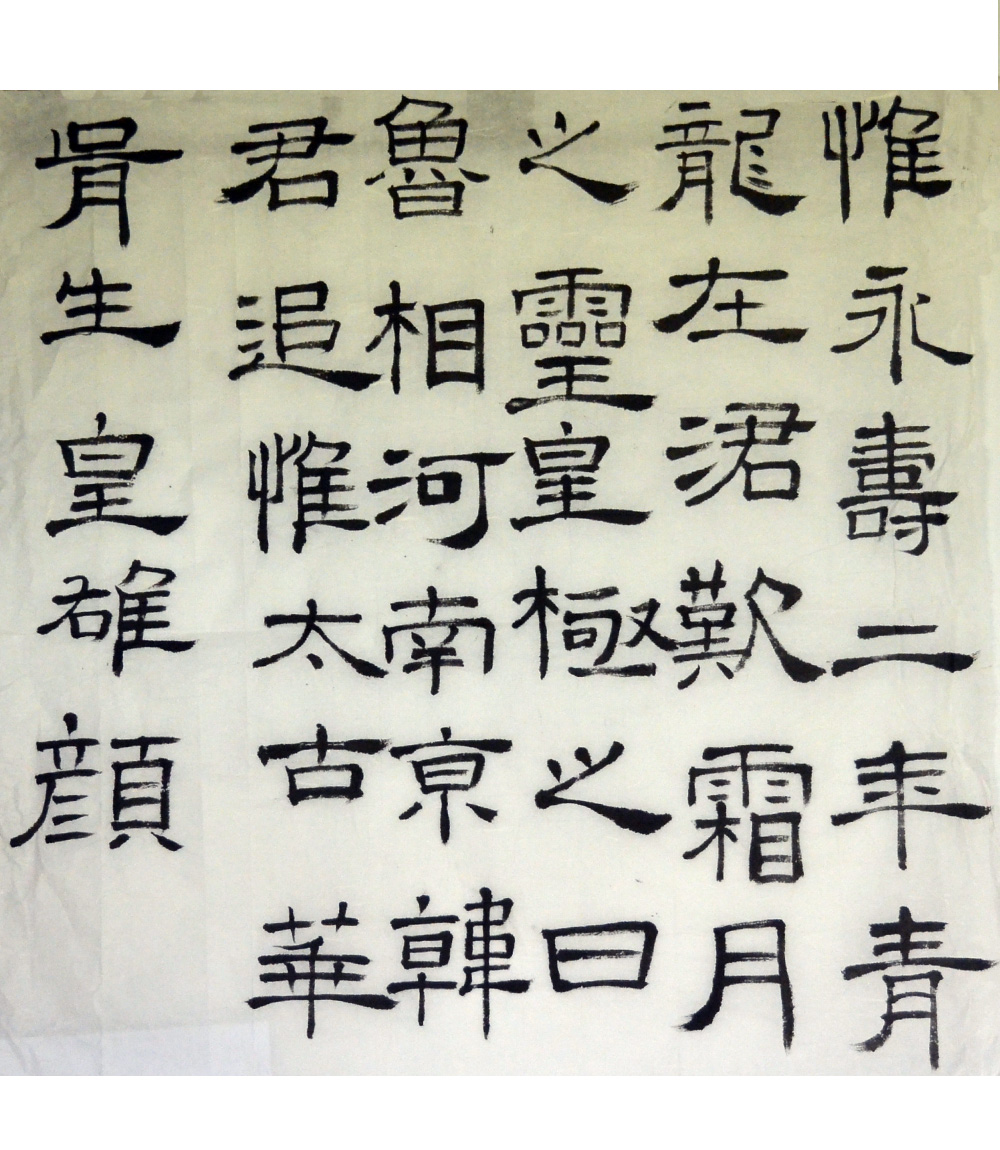 惟永壽二年青
龍在涒歎霜月
之靈皇極之日
魯相河南亰韓
君追惟太古華
胥生皇雄顏